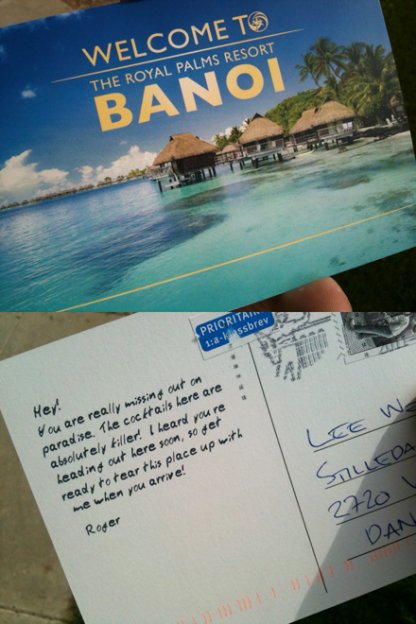 WELCOME TO
THE ROYAL PALMS RESORT
BANOI
PRIORITAIRE
1:a-klassbrev
Hey!
You are really missing out on
paradise. The cocktails here are
absolutely killer! I heard you're
heading out here soon, so get
ready to tear this place up with
me when you arrive!
Roger
LEE
2720